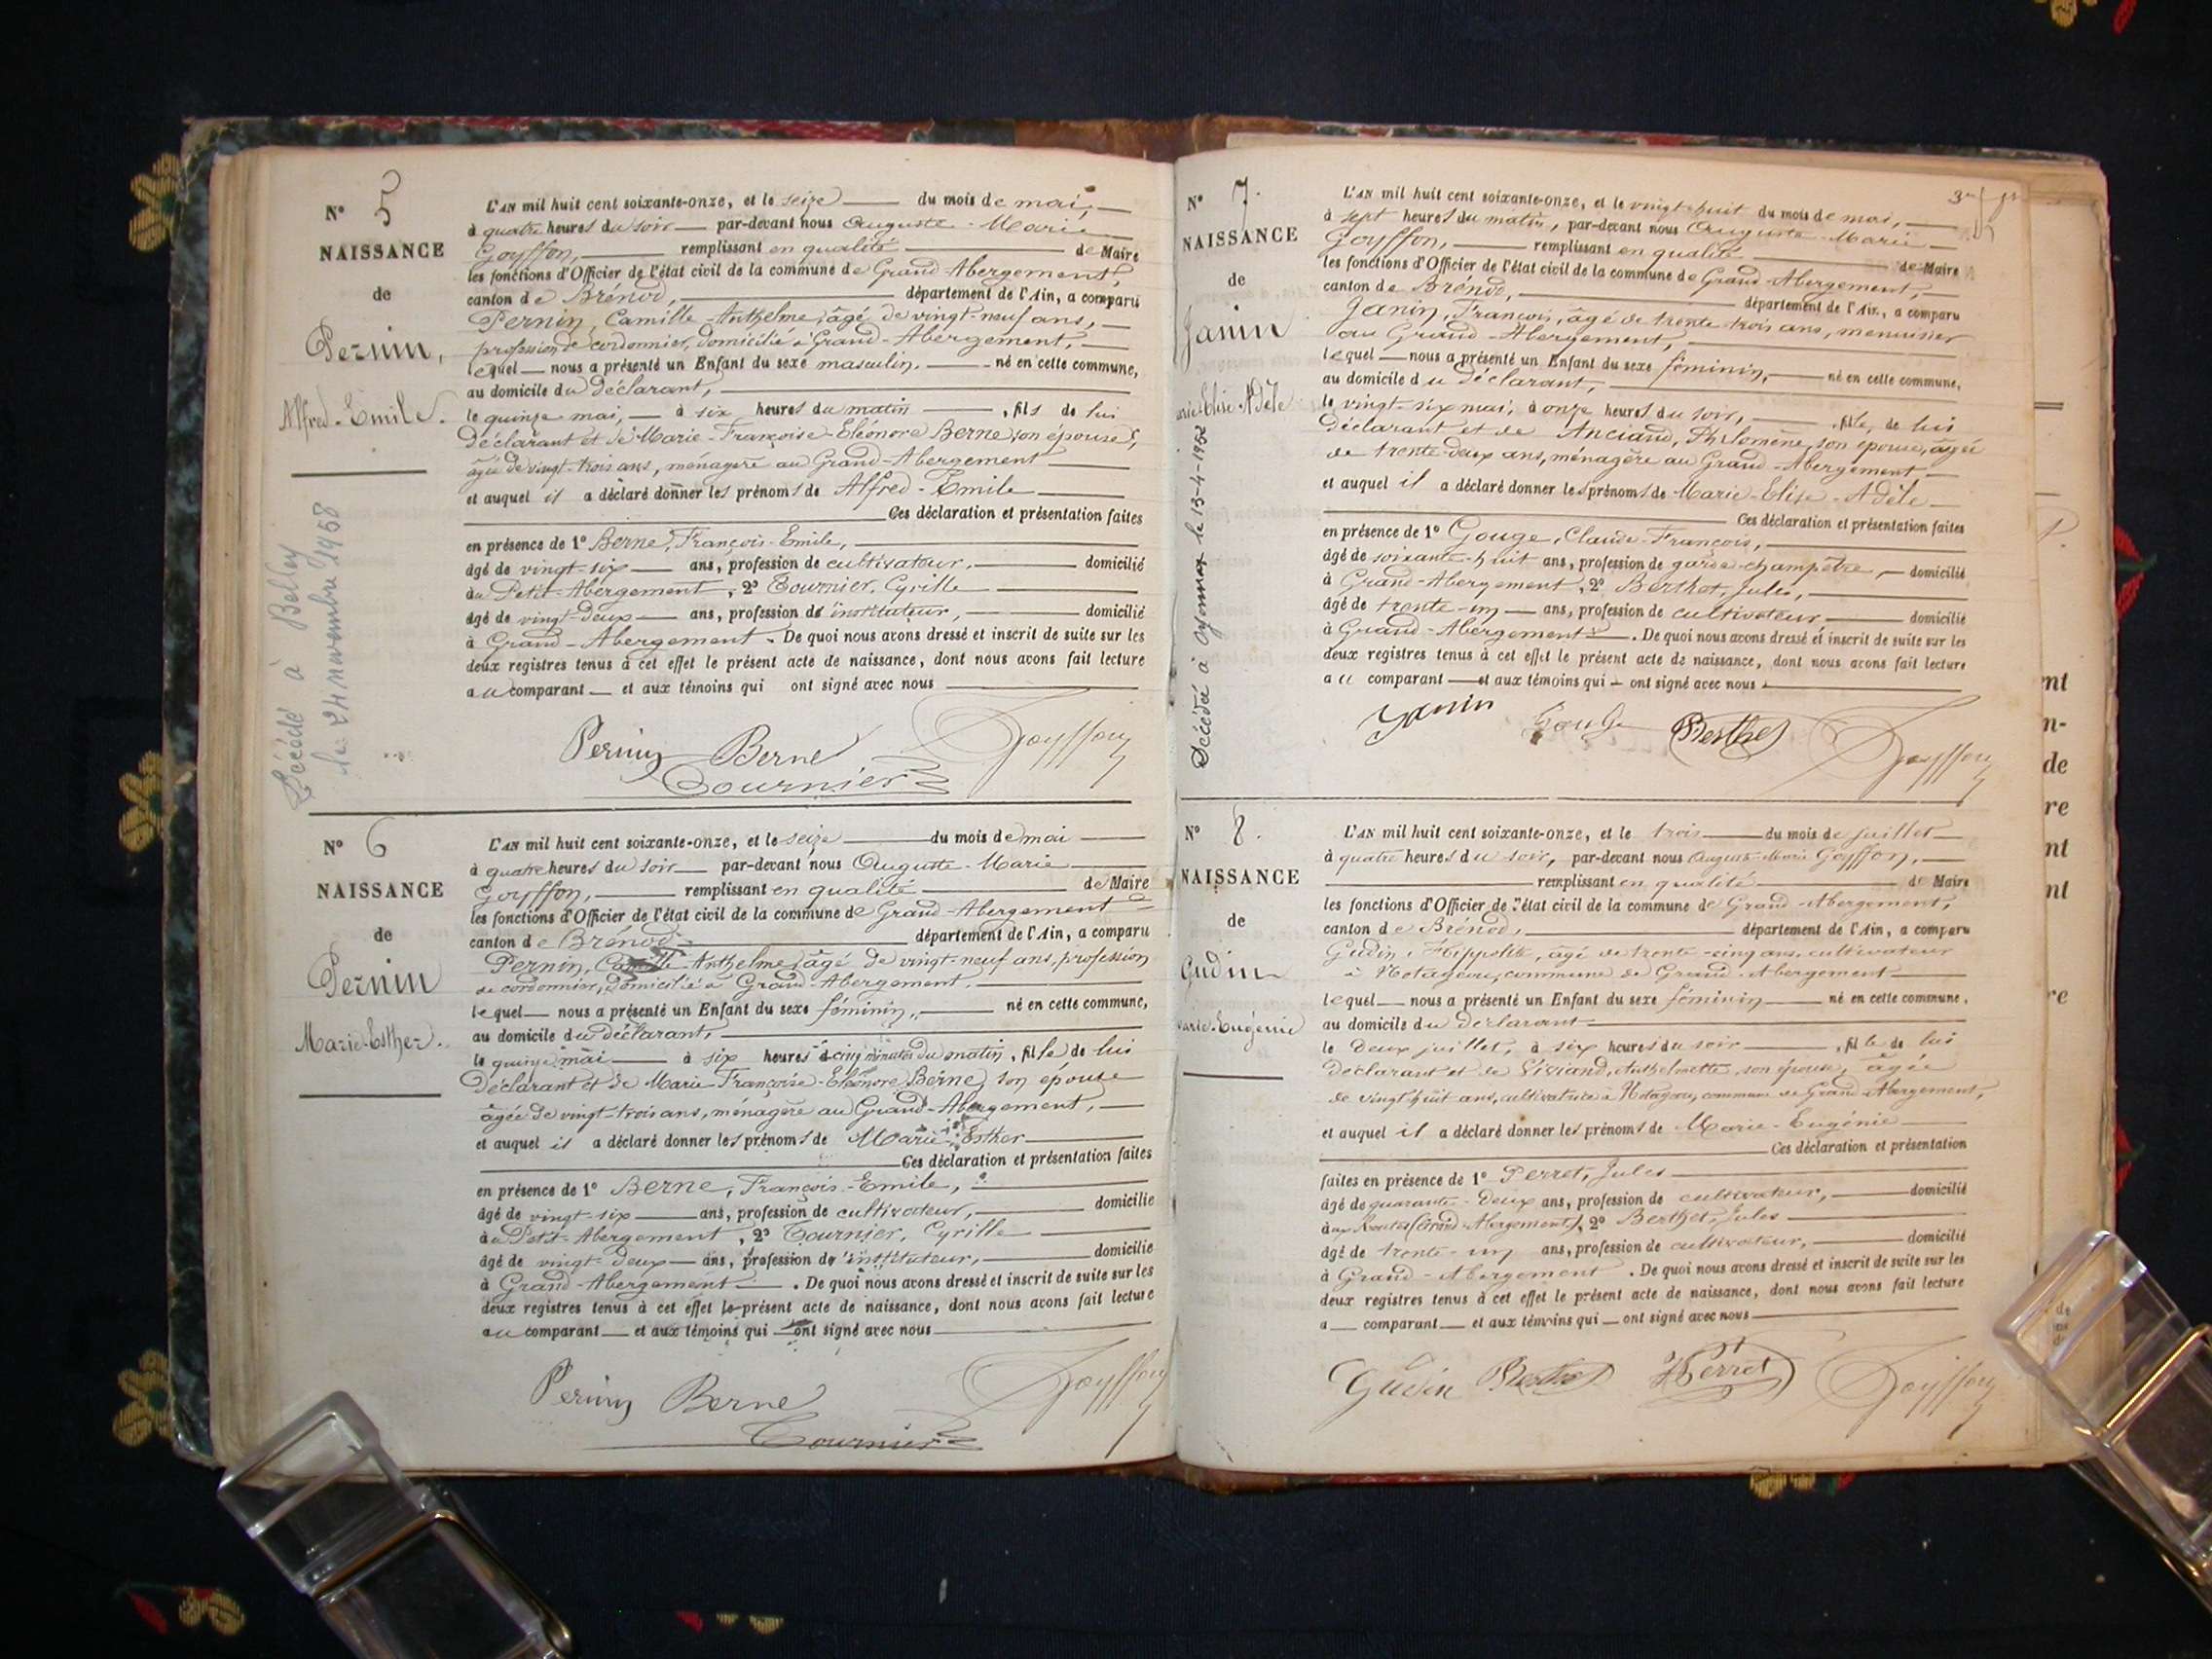 N° 5
NAISSANCE
de
Pernin,
Alfred-Emile.
Décédé à Belley
le 24 novembre 1958
L'AN mil huit cent soixante-onze, et le seize du mois de mai,
à quatre heures du soir par-devant nous Auguste-Marie
Goyffon, remplissant en qualité de Maire
les fonctions d'Officier de l'état civil de la commune de Grand-Abergement,
canton de Brénod, département de l'Ain, a comparu
Pernin, Camille-Anthelme, âgé de vingt-neuf ans,
profession de cordonnier, domicilié à Grand-Abergement,
lequel nous a présenté un Enfant du sexe masculin. né en cette commune,
au domicile du déclarant,
le quinze mai, à six heures du matin, fils de lui
déclarant et de Marie-Françoise-Eléonore Berne, son épouse,
âgée de vingt-trois ans, ménagère au Grand-Abergement
et auquel il a déclaré donner les prénoms de Alfred-Emile
Ces déclaration et présentation faites
en présence de 1° Berne, François-Emile,
âgé de vingt-six ans, profession de cultivateur, domicilié
au Petit-Abergement, 2° Tournier, Cyrille
âgé de vingt-deux ans, profession d'instituteur, domicilié
à Grand-Abergement. De quoi nous avons dressé et inscrit de suite sur les
deux registres tenus à cet effet le présent acte de naissance, dont nous avons fait lecture
au comparant et aux témoins qui ont signé avec nous
Pernin Berne Goyffon
Tournier
N° 6
NAISSANCE
de
Pernin
Marie-Esther.
L'AN mil huit cent soixante-onze, et le seize du mois de mai
à quatre heures du soir par-devant nous Auguste-Marie
Goyffon, remplissant en qualité de Maire
les fonctions d'Officier de l'état civil de la commune de Grand-Abergement
canton de Brénod département de l'Ain, a comparu
Pernin, Camille Anthelme, âgé de vingt-neuf ans, profession
de cordonnier, domicilié à Grand-Abergement.
lequel nous a présenté un Enfant du sexe féminin, né en cette commune,
au domicile du déclarant,
le quinze mai à six heures cinq minutes du matin, fille de lui
déclarant et de Marie Françoise-Eléonore Berne, son épouse
âgée de vingt-trois ans, ménagère au Grand-Abergement,
et auquel il a déclaré donner les prénoms de Marie-Esther
Ces déclaration et présentation faites
en présence de 1° Berne, François-Emile,
âgé de vingt-six ans, profession de cultivateur, domicilié
au Petit-Abergement, 2° Tournier, Cyrille
âgé de vingt-deux ans, profession d'instituteur, domicilié
à Grand-Abergement. De quoi nous avons dressé et inscrit de suite sur les
deux registres tenus à cet effet le présent acte de naissance, dont nous avons fait lecture
au comparant et aux témoins qui ont signé avec nous
Pernin Berne Goyffon
Tournier
N° 7.
NAISSANCE
de
Janin
Elise-Adèle
Décédée à Oyonnax le 13-4-1952
L'AN mil huit cent soixante-onze, et le vingt-huit du mois de mai,
à sept heures du matin, par-devant nous Auguste-Marie
Goyffon, remplissant en qualité de Maire
les fonctions d'Officier de l'état civil de la commune de Grand-Abergement,
canton de Brénod, département de l'Ain, a comparu
Janin, François, âgé de trente trois ans, menuisier
au Grand-Abergement,
lequel nous a présenté un Enfant du sexe féminin, né en cette commune,
au domicile du déclarant,
le vingt-six mai, à onze heures du soir, fille de lui
déclarant et de Anciand, Philomène, son épouse, âgée
de trente-deux ans, ménagère au Grand-Abergement
et auquel il a déclaré donner les prénoms de Marie-Elise-Adèle
Ces déclaration et présentation faites
en présence de 1° Gouge, Claude-François,
âgé de soixante-huit ans, profession de garde-champêtre, domicilié
à Grand-Abergement, 2° Berthet, Jules,
âgé de trente-un ans, profession de cultivateur domicilié
à Grand-Abergement. De quoi nous avons dressé et inscrit de suite sur les
deux registres tenus à cet effet le présent acte de naissance, dont nous avons fait lecture
au comparant et aux témoins qui ont signé avec nous
Janin Gouge Berthet Goyffon
N° 8.
NAISSANCE
de
Gudin
Marie-Eugénie
L'AN mil huit cent soixante-onze, et le trois du mois de juillet
à quatre heures du soir, par-devant nous Auguste-Marie Goyffon,
remplissant en qualité de Maire
les fonctions d'Officier de l'état civil de la commune de Grand-Abergement,
canton de Brénod, département de l'Ain, a comparu
Gudin, Hippolite, âgé de trente-cinq ans, cultivateur
à commune de Grand-Abergement
lequel nous a présenté un Enfant du sexe féminin né en cette commune.
au domicile du déclarant
le deux juillet, à six heures du soir, fille de lui
déclarant et de Anthelmette, son épouse, âgée
de vingt-huit ans, cultivatrice à commune de Grand-Abergement,
et auquel il a déclaré donner les prénoms de Marie-Eugénie
Ces déclaration et présentation
faites en présence de 1° Perret, Jules
âgé de quarante-deux ans, profession de cultivateur, domicilié
aux (Grand-Abergement), 2° Berthet, Jules
âgé de trente-un ans, profession de cultivateur, domicilié
à Grand-Abergement. De quoi nous avons dressé et inscrit de suite sur les
deux registres tenus à cet effet le présent acte de naissance, dont nous avons fait lecture
a comparant et aux témoins qui ont signé avec nous
Gudin Berthet Perret Goyffon
nt
n-
de
re
nt
nt
re